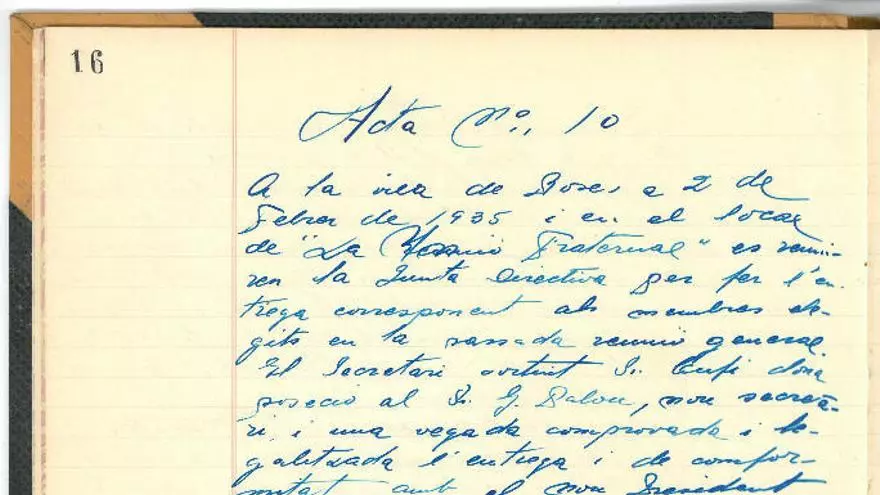 16
Acta Nº. 10
A la vila de Roses a 2 de
Febrer de 1935 i en el local
de "La Fraternal" es reuni-
ren la Junta Directiva per fer l'en-
trega corresponent als membres ele-
gits en la passada reunio general.
El Secretari sortint Sr. Cufi dona
posecio al Sr. G. Palou, nou secretà-
ri, i una vegada comprovada i le-
galitzada l'entrega i de confor-
mitat amb el nou President